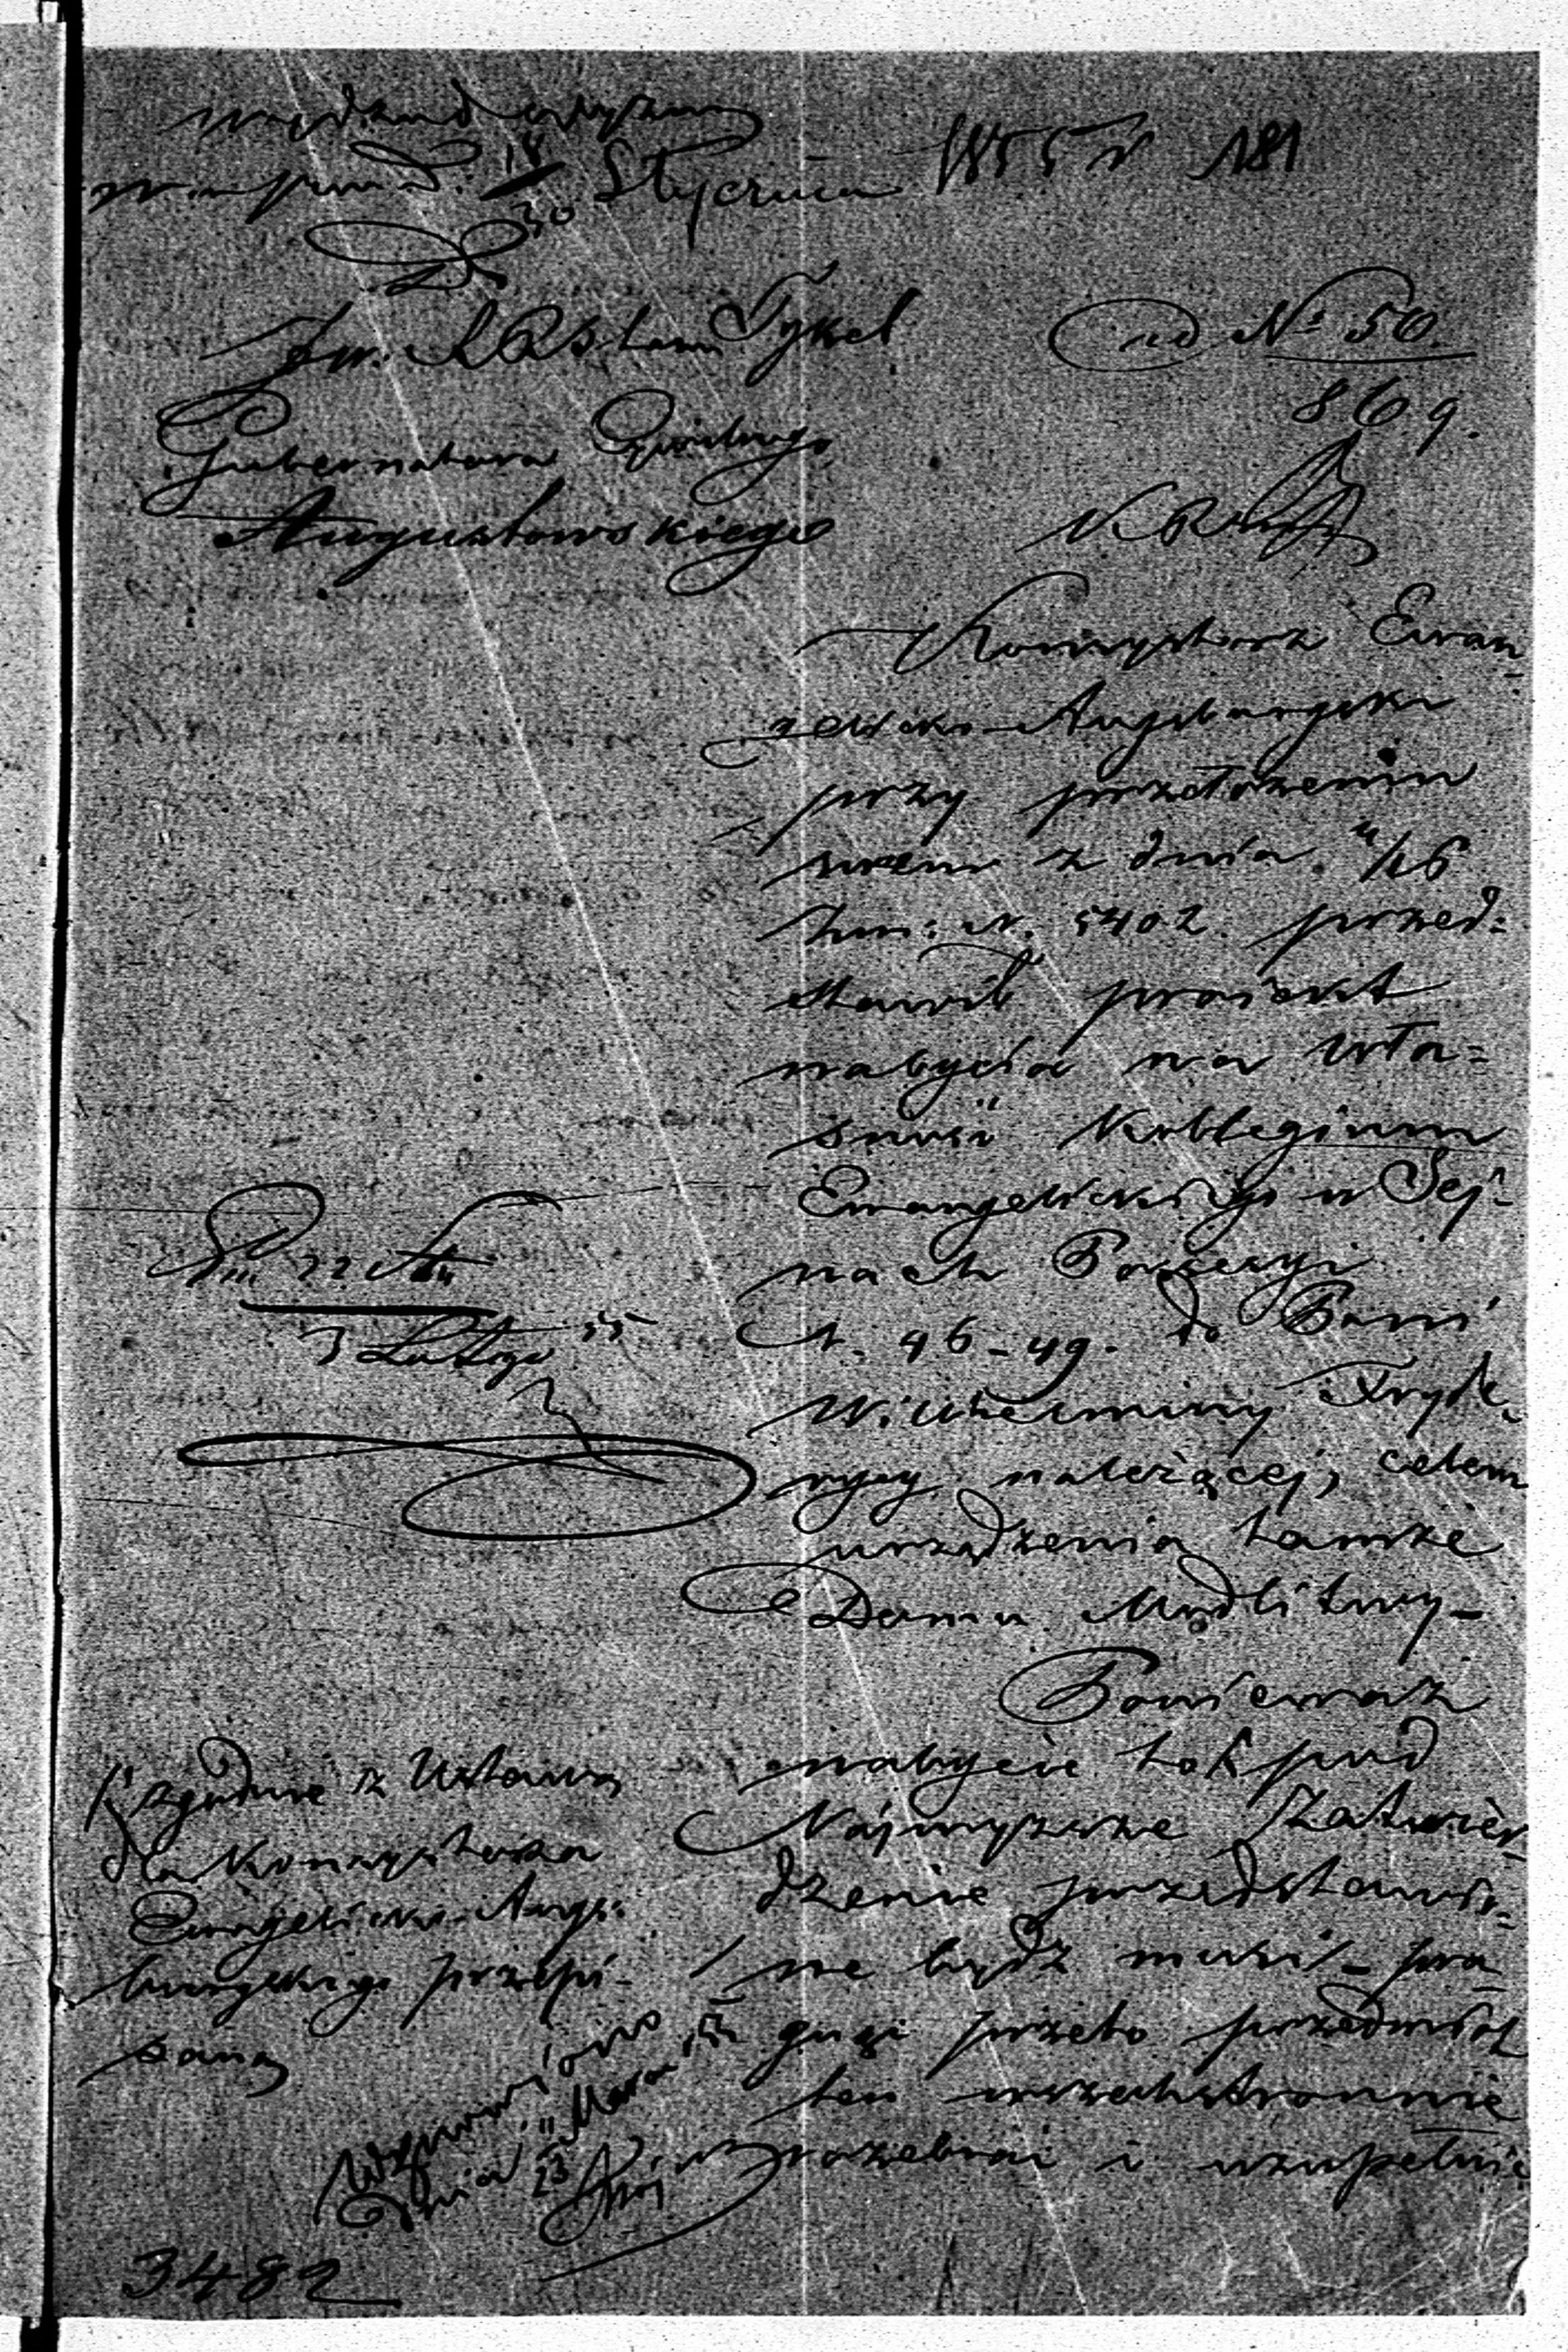 d. 18/30 Stycznia 1855 r 181
ad № 50.
869.
Gubernatora Cywilnego
Augustowskiego
Konsystorz Ewan-
gelicko-Augsburgski
przy przełożeniu
swem z dnia 4/16
N. 5402. przed-
stawił projekt
nabycia na wła-
sność Kollegium
Ewangelickiego w Sej-
nach Possessyi
N. 46-49. do Pani
Wilhelminy Fryde-
rycy należącej, celem
urządzenia tamże
Domu Modlitwy-
Ponieważ
nabycie tak pod
Najwyższe Zatwier-
dzenie przedstawio-
ne bydź musi-pra-
gnąc przeto przedmiot
ten wszechstronnie
rozebrać i uzupełnić
22
3 Lutego 55
zgodnie z Ustawą
dla Konsystorza
Ewangelicko-Augs-
burgskiego przepi-
saną
dnia 11/23 Marca 55
3482